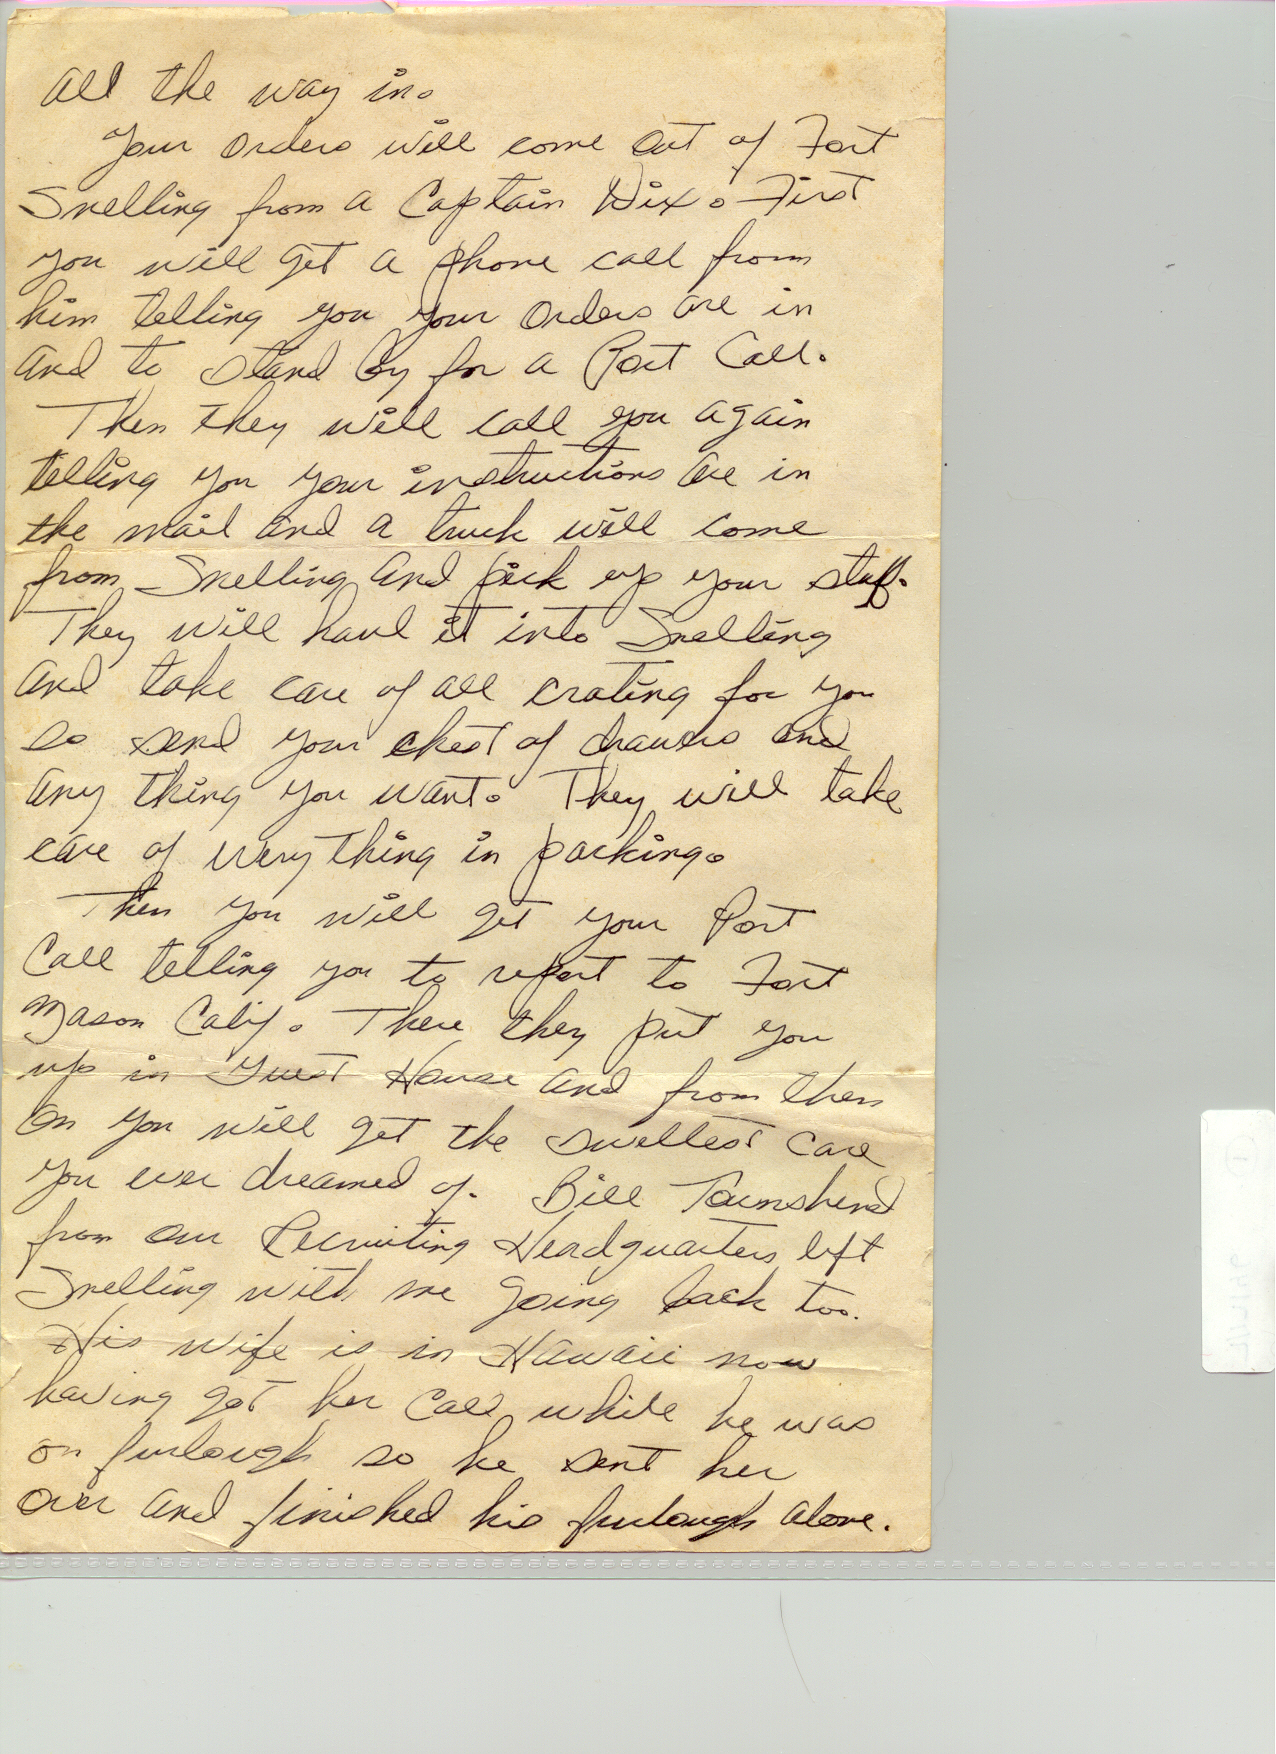 all the way in.
Your orders will come out of Fort
Snelling from a Captain Wix. First
you will get a phone call from
him telling you your orders are in
and to stand by for a Port Call.
Then they will call you again
telling you your instructions are in
the mail and a truck will come
from Snelling and pick up your stuff.
They will haul it into Snelling
and take care of all crating for you
so send your chest of drawers and
any thing you want. They will take
care of every thing in packing.
Then you will get your Port
Call telling you to report to Fort
Mason Calif. There they put you
up in Guest House and from then
on you will get the swellest care
you ever dreamed of. Bill Townshend
from our Recruiting Headquarters left
Snelling with me going back too.
His wife is in Hawaii now
having got her call while he was
on furlough so he sent her
over and finished his furlough alone.